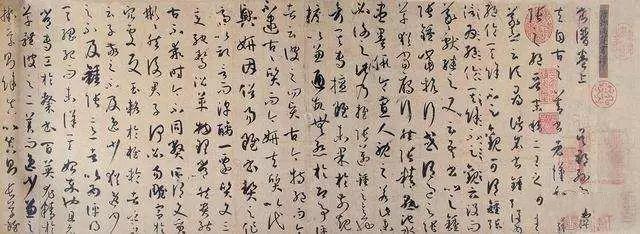 書譜卷上 吳郡孫過庭撰
夫自古之善書者漢魏有
鍾張之絕晉末稱二王之妙王
羲之云頃尋諸名書鍾張信
為絕倫其餘不足觀可謂鍾張
云沒而羲獻繼之又云吾書比之鍾
張鍾當抗行或謂過之張
草猶當鴈行然張精熟池水
盡墨假令寡人耽之若此未
必謝之此乃推張邁鍾之意也
考其專擅雖未果於前規
摭以兼通故無慚於即事評
者云彼之四賢古今特絕而今
不逮古古質而今妍夫質以代
興妍因俗易雖書契之作適
以記言而淳醨一遷質文三
變馳鶩沿革物理常然貴能
古不乖時今不同弊所謂文質
彬彬然後君子何必易雕宮
於穴處反玉輅於椎輪者乎又
云子敬之不及逸少猶逸少
之不及鍾張意者以為評得其
綱紀而未詳其始卒也且元
常專工於隸書百英尤精於
草體彼之二美而逸少兼之
擬草則餘真比真則長草雖